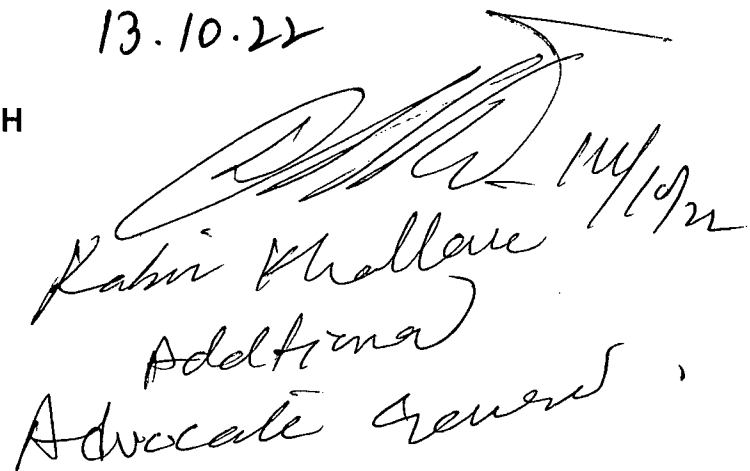 13.10.22
H
14/10/22
Kabir
Additional
Advocate General.